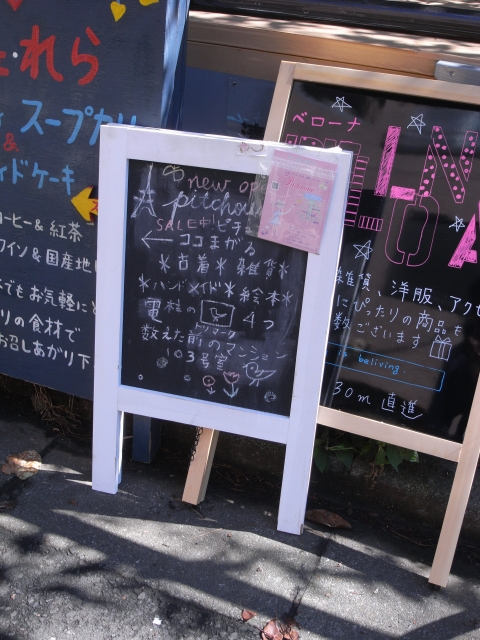 れら
スープカリ
&
ィドケーキ
コーヒー&紅茶
ワイン&国産地
でもお気軽に
りの食材で
お召しあがり下
new op
pitchou
SALE中!ピチ
← ココまがる
*古着*雑貨*
*ハンドメイド*絵本*
電柱の 4つ
トリマーク
数えた前のマンション
103号室
ベローナ
雑貨、洋服、アクセ
にぴったりの商品を
数 ございます
is beliving.
30m 直進